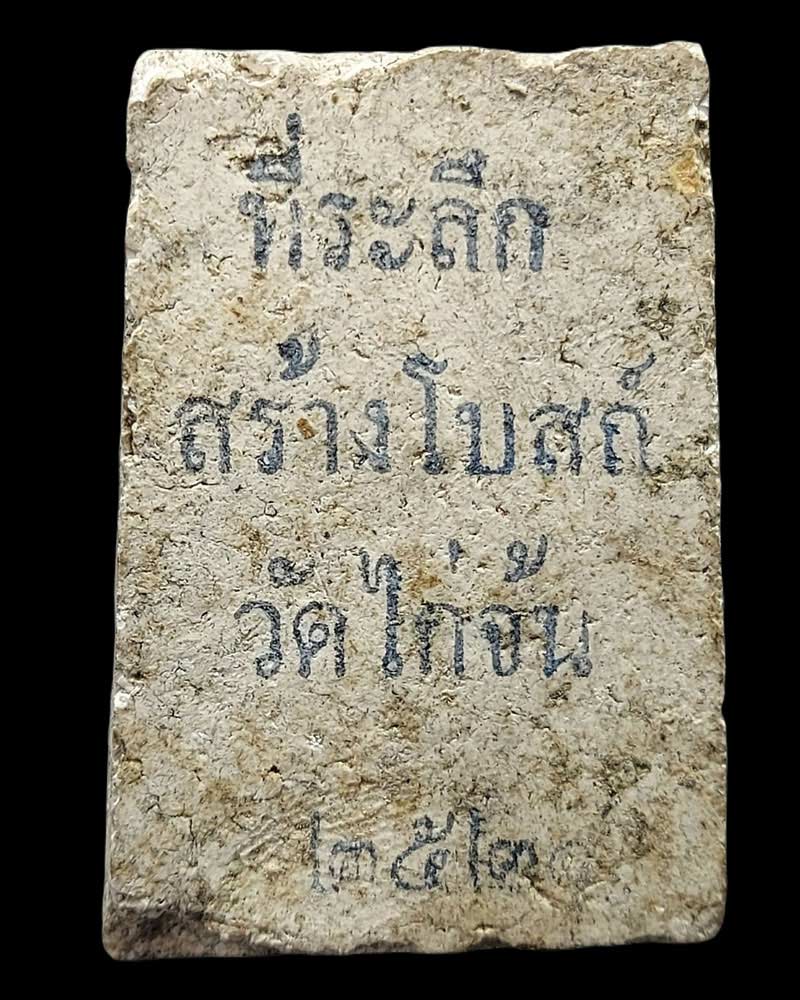 ที่ระลึก
สร้างโบสถ์
วัดไก่จ้น
๒๕๒๐